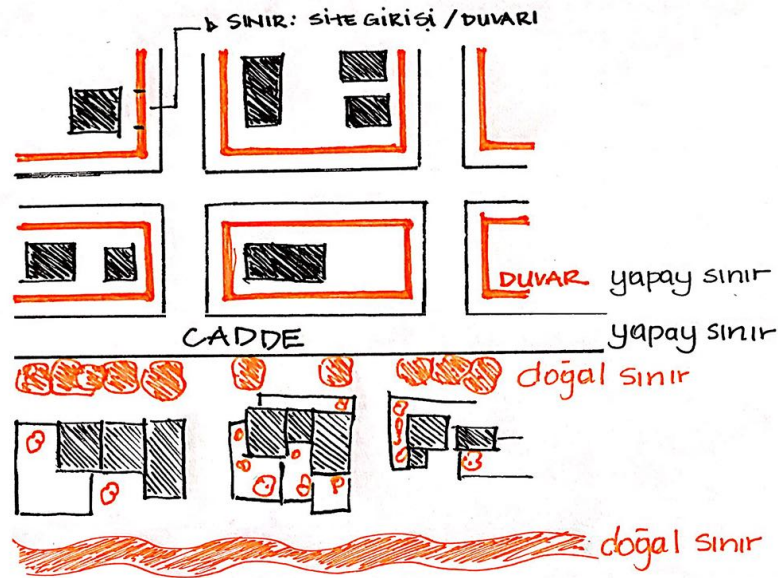 SINIR: SİTE GİRİŞİ / DUVARI
DUVAR yapay sınır
CADDE yapay sınır
doğal sınır
doğal sınır